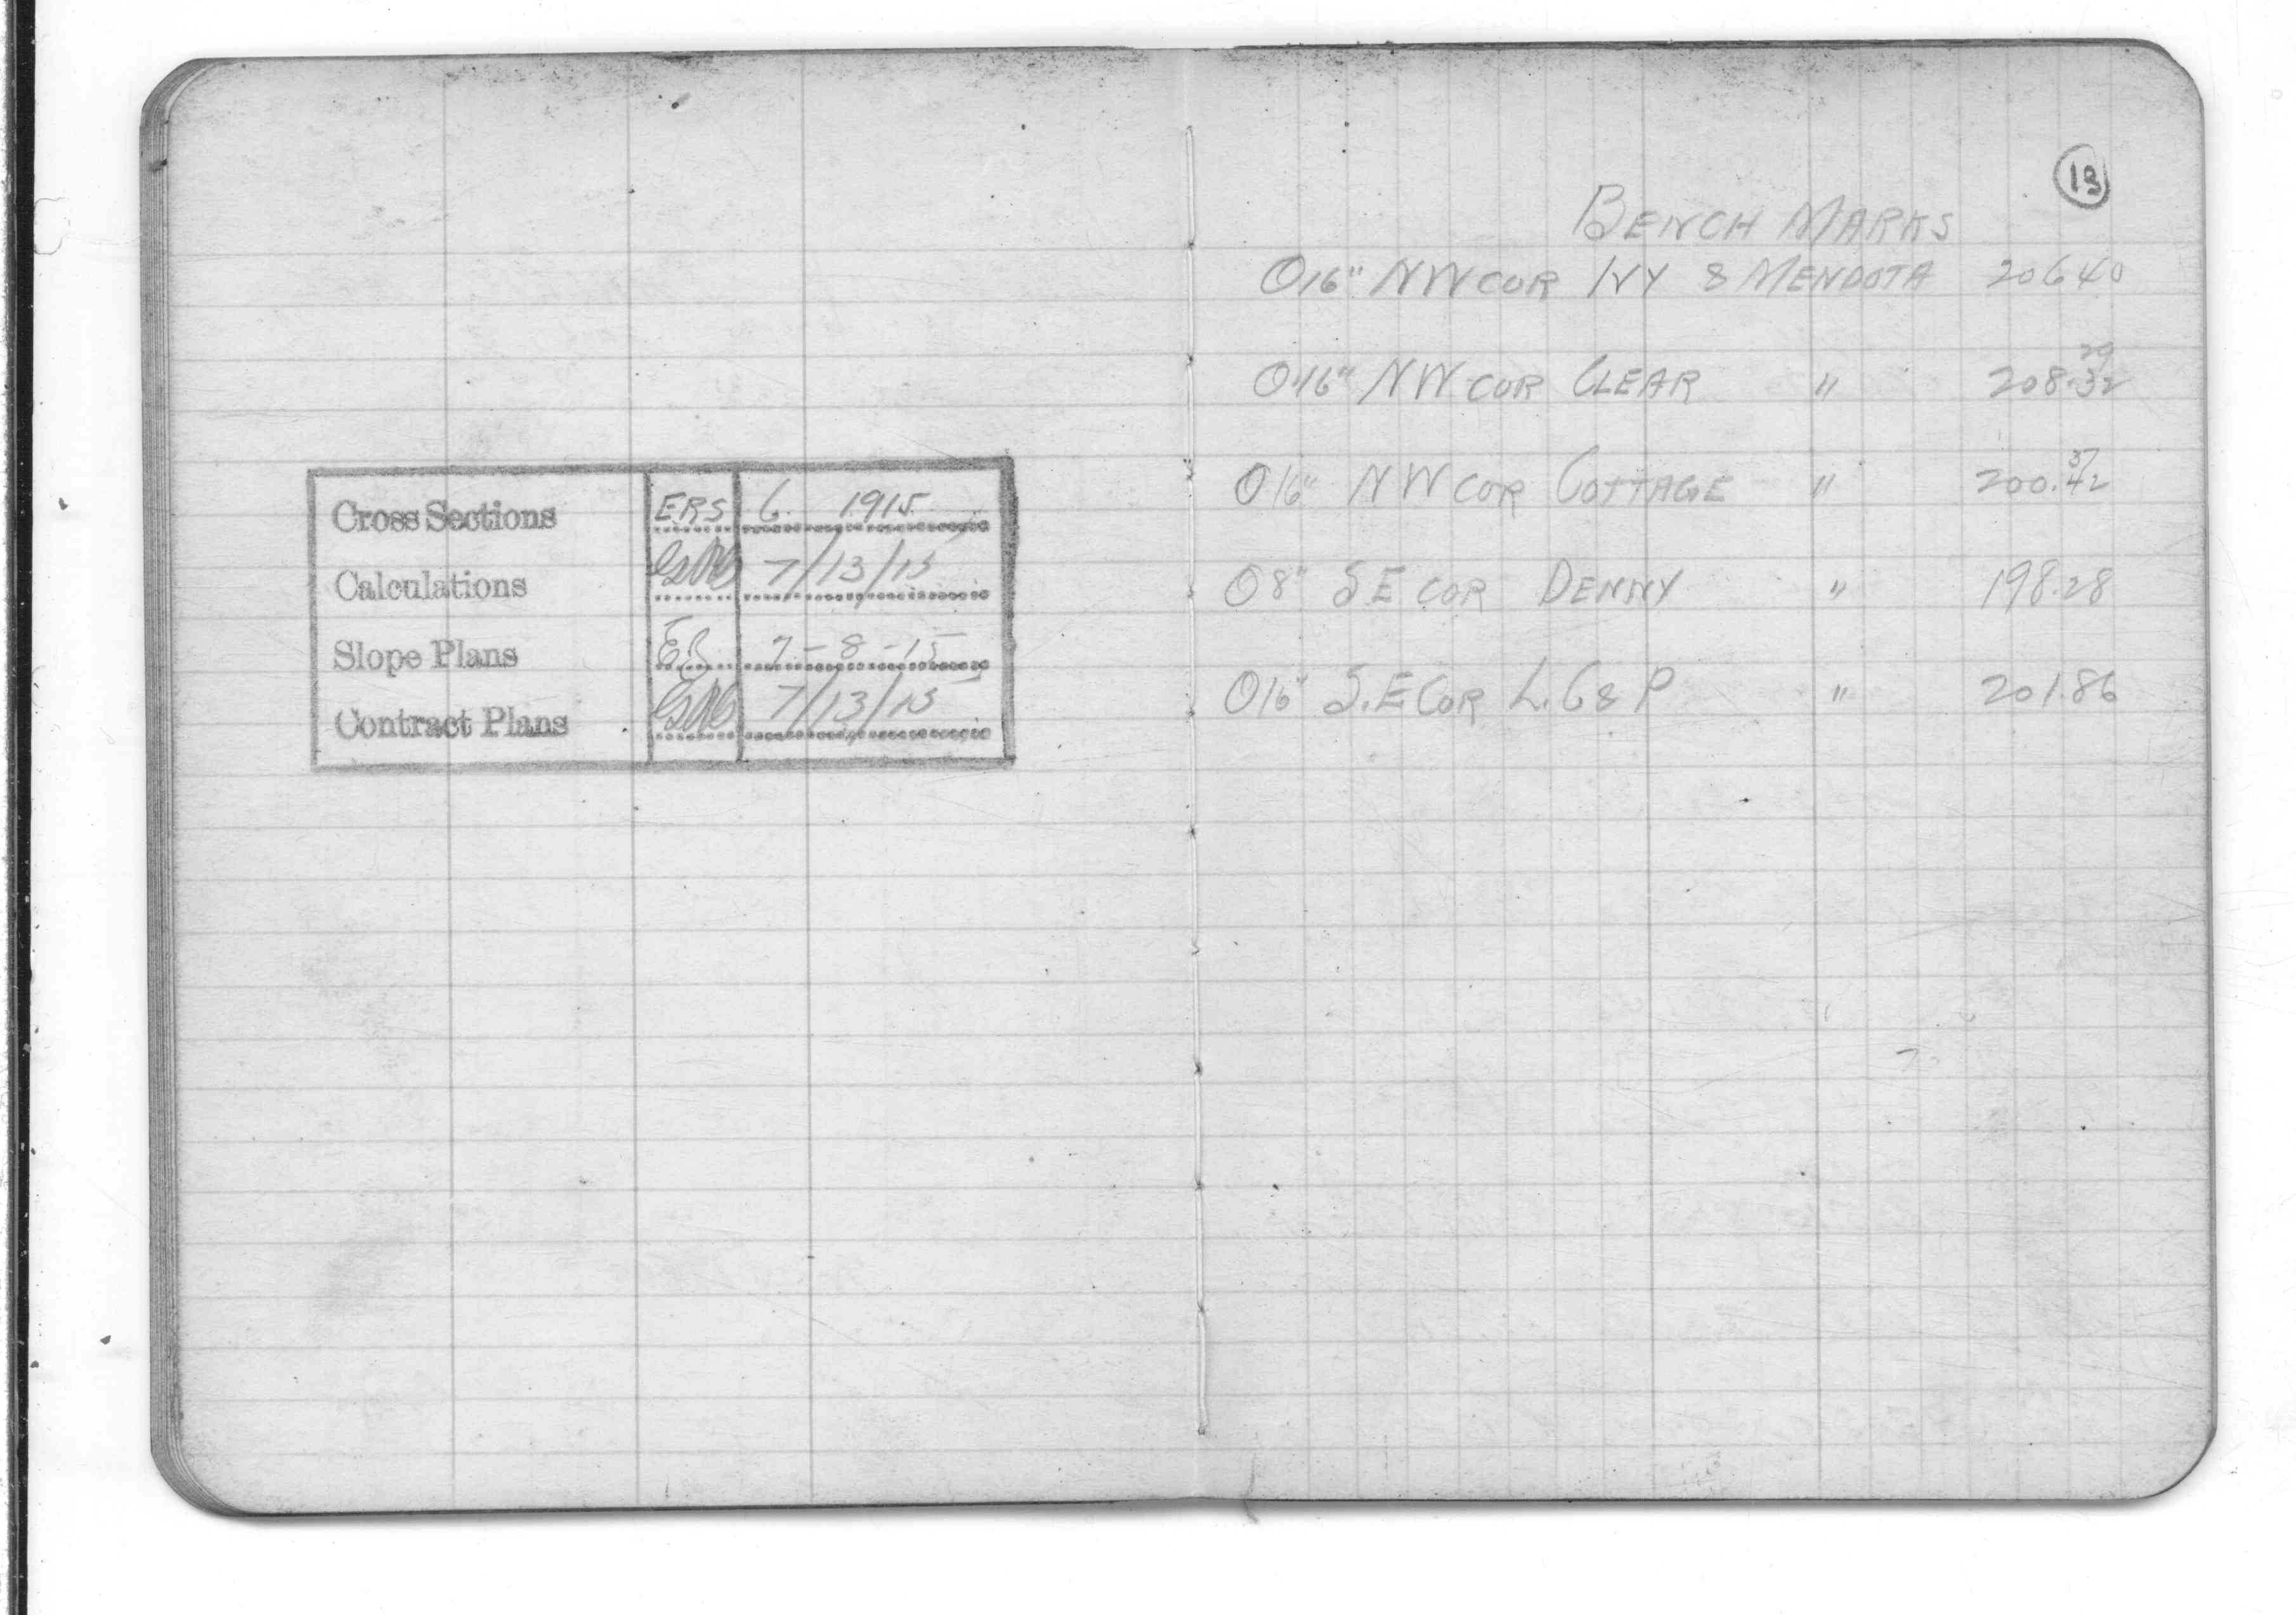 Cross Sections ERS 6. 1915
Calculations 7/13/15
Slope Plans 7-8-15
Contract Plans 7/13/15
13
BENCH MARKS
O 16" NW COR IVY & MENDOTA 206 40
29
O 16" NW COR CLEAR " 208.32
37
O 16" NW COR COTTAGE " 200.42
O 8" S E COR DENNY " 198.28
O 16" S.E COR L. C & P " 201.86